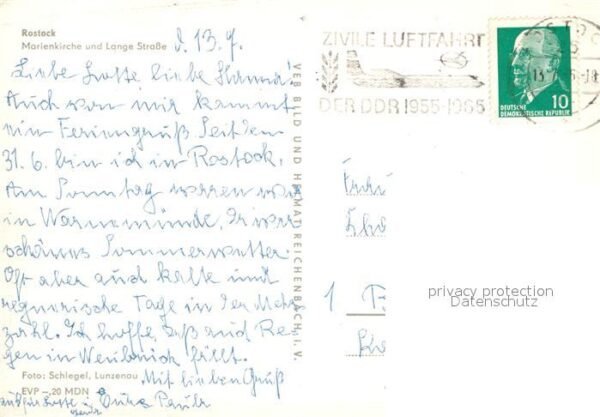 Rostock
Marienkirche und Lange Straße
d. 13. 7.
Liebe Lotte liebe Hanna!
Auch von mir kommt
ein Feriengruß Seit dem
31. 6. bin ich in Rostock.
Am Sonntag waren wir
in Warnemünde. Es war
schönes Sommerwetter.
Oft aber auch kalte und
regnerische Tage in der Mehr
zahl. Ich hoffe, daß auch Re-
gen in fällt.
Mit lieben Gruß
Foto: Schlegel, Lunzenau
EVP –,20 MDN
VEB BILD UND HEIMAT REICHENBACH I. V.
ZIVILE LUFTFAHRT
DER DDR 1955-1965
DEUTSCHE
DEMOKRATISCHE REPUBLIK
10
1
privacy protection
Datenschutz